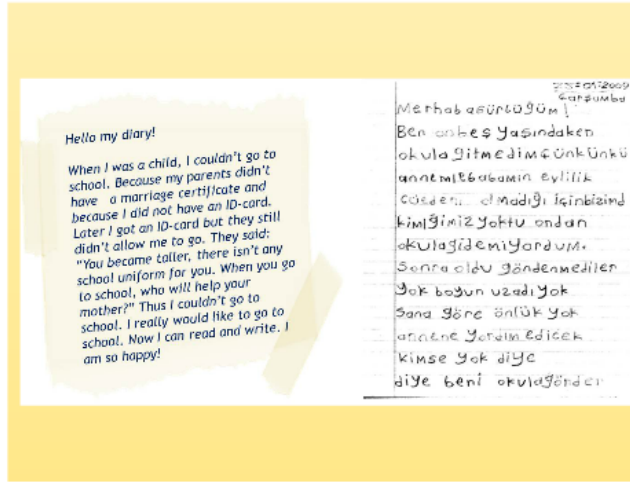 Hello my diary!
When I was a child, I couldn't go to
school. Because my parents didn't
have a marriage certificate and
because I did not have an ID-card.
Later I got an ID-card but they still
didn't allow me to go. They said:
"You became taller, there isn't any
school uniform for you. When you go
to school, who will help your
mother?" Thus I couldn't go to
school. I really would like to go to
school. Now I can read and write. I
am so happy!
2009
Çarşamba
Merhaba günlüğüm!
Ben onbeş yaşındaken
okula gitmedim çünkünkü
annemlebabamın evlilik
olmadığı içinbizimd
kimliğimiz yoktu ondan
okulagidemiyordum.
Sonra oldu göndenmediler
yok boyun uzadı yok
Sana göre önlük yok
annene yardım edicek
kimse yok diye
diye beni okulagönder